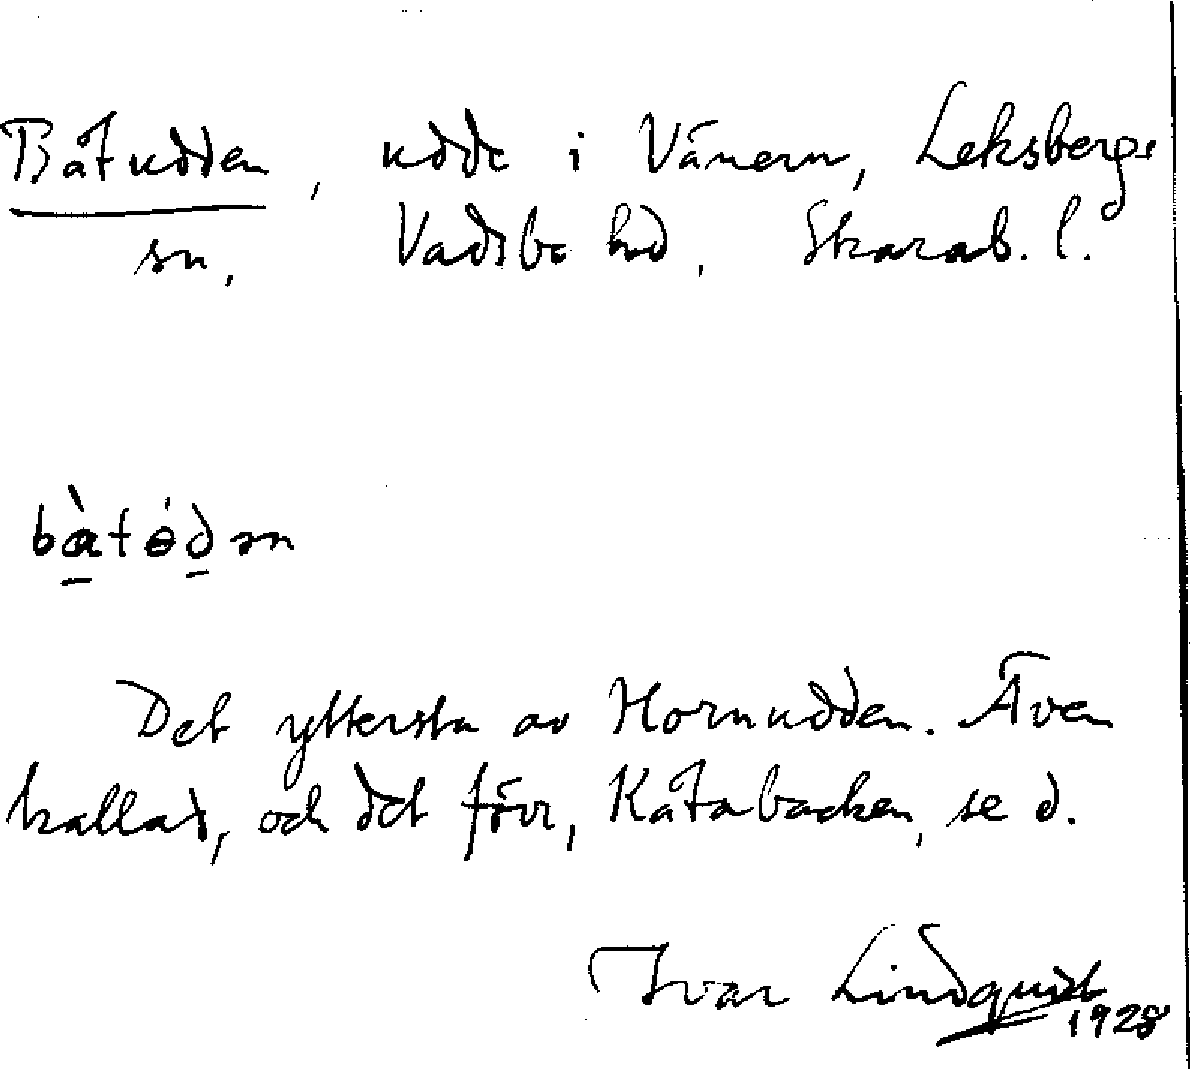 Båtudden, udde i Vänern, Leksbergs
sn, Vadsbo hd, Skarab. l.
bàtɵ́dən
Det yttersta av Hornudden. Även
kallad, och det förr, Kåtabacken, se d.
Ivar Lindquist
1928